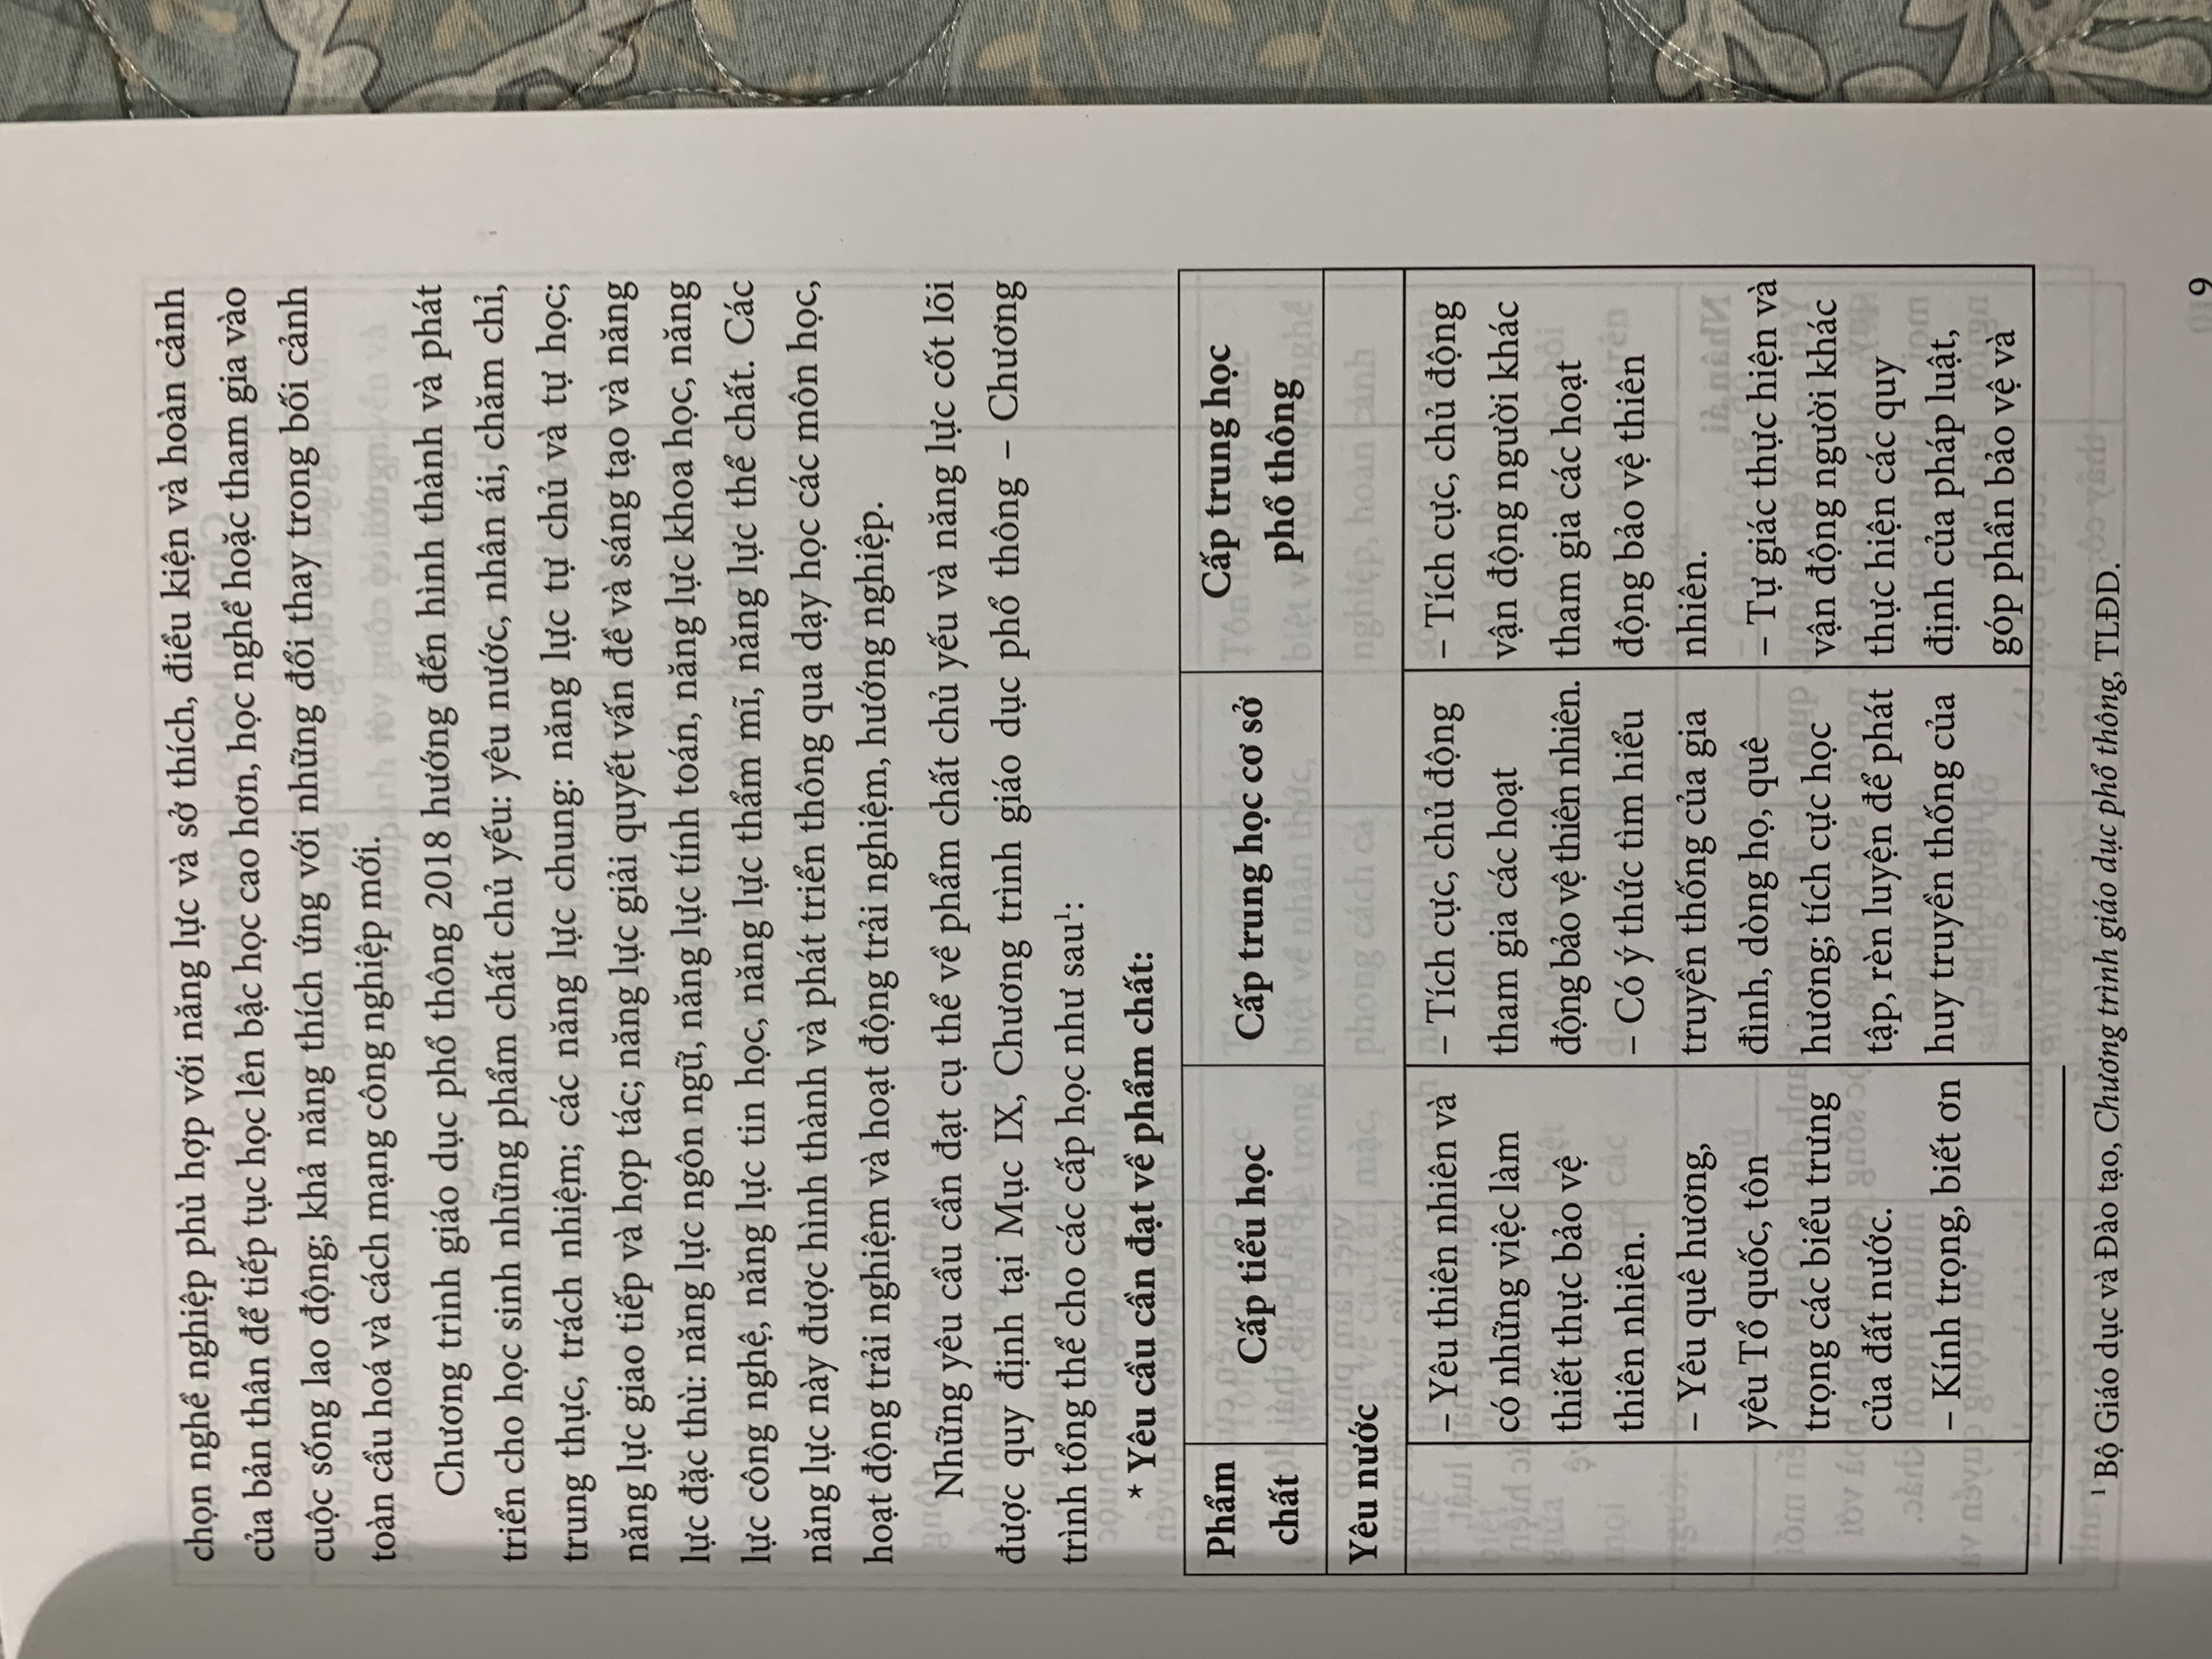 chọn nghề nghiệp phù hợp với năng lực và sở thích, điều kiện và hoàn cảnh
của bản thân để tiếp tục học lên bậc học cao hơn, học nghề hoặc tham gia vào
cuộc sống lao động; khả năng thích ứng với những đổi thay trong bối cảnh
toàn cầu hoá và cách mạng công nghiệp mới.
Chương trình giáo dục phổ thông 2018 hướng đến hình thành và phát
triển cho học sinh những phẩm chất chủ yếu: yêu nước, nhân ái, chăm chỉ,
trung thực, trách nhiệm; các năng lực chung: năng lực tự chủ và tự học;
năng lực giao tiếp và hợp tác; năng lực giải quyết vấn đề và sáng tạo và năng
lực đặc thù: năng lực ngôn ngữ, năng lực tính toán, năng lực khoa học, năng
lực công nghệ, năng lực tin học, năng lực thẩm mĩ, năng lực thể chất. Các
năng lực này được hình thành và phát triển thông qua dạy học các môn học,
hoạt động trải nghiệm và hoạt động trải nghiệm, hướng nghiệp.
Những yêu cầu cần đạt cụ thể về phẩm chất chủ yếu và năng lực cốt lõi
được quy định tại Mục IX, Chương trình giáo dục phổ thông – Chương
trình tổng thể cho các cấp học như sau¹:
* Yêu cầu cần đạt về phẩm chất:
Phẩm
chất
Cấp tiểu học
Cấp trung học cơ sở
Cấp trung học
phổ thông
Yêu nước
– Yêu thiên nhiên và
có những việc làm
thiết thực bảo vệ
thiên nhiên.
– Yêu quê hương,
yêu Tổ quốc, tôn
trọng các biểu trưng
của đất nước.
– Kính trọng, biết ơn
– Tích cực, chủ động
tham gia các hoạt
động bảo vệ thiên nhiên.
– Có ý thức tìm hiểu
truyền thống của gia
đình, dòng họ, quê
hương; tích cực học
tập, rèn luyện để phát
huy truyền thống của
– Tích cực, chủ động
vận động người khác
tham gia các hoạt
động bảo vệ thiên
nhiên.
– Tự giác thực hiện và
vận động người khác
thực hiện các quy
định của pháp luật,
góp phần bảo vệ và
¹ Bộ Giáo dục và Đào tạo, Chương trình giáo dục phổ thông, TLĐD.
9